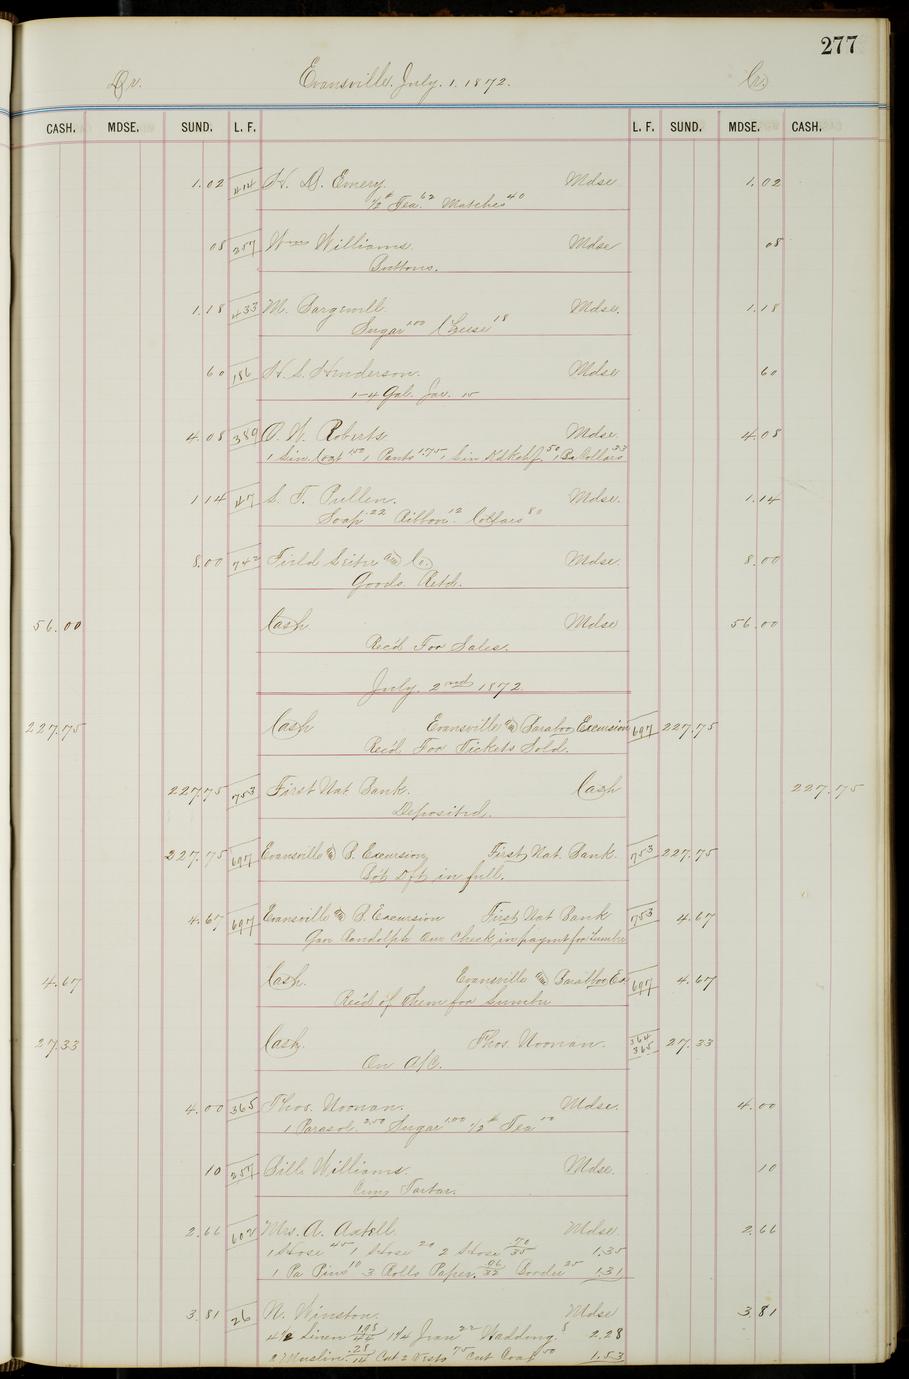 277
Dr. Evansville. July. 1. 1872. Cr.
CASH. MDSE. SUND. L. F. L. F. SUND. MDSE. CASH.
1.02 414 H. D. Emery. Mdse 1.02
½ # Tea. 62 Matches 40
08 257 Wm Williams. Mdse 08
Buttons.
1.18 433 M. Mdse. 1.18
Sugar 1.00 Cheese 18
60 186 H. S. Henderson. Mdse 60
1-4 Gal. Jar.
4.08 389 O. W. Roberts. Mdse. 4.08
1 Lin. Coat 1.50 1 Pants 1.75 1 Lin Hdkchf. 50 1 Bx Collars 33
1 14 47 S. T. Pullen. Mdse. 1.14
Soap .22 Ribbon 12 Collars 80
8.00 742 Field Leiter and Co. Mdse. 8.00
Goods Retd.
56.00 Cash Mdse 56.00
Rec'd For Sales.
July. 2nd 1872.
227.75 Cash Evansville and Baraboo Excursion 697 227.75
Rec'd For Tickets Sold.
227.75 753 First Nat Bank. Cash 227.75
Deposited.
227.75 697 Evansville and B. Excursion First Nat. Bank. 753 227.75
Bo't Dft in full.
4.67 697 Evansville and B. Excursion First Nat Bank 753 4.67
Randolph Our Check in paymt for Lumber
4.67 Cash. Evansville and Baraboo Ex 697 4.67
Rec'd of Them for Lumber
27.33 Cash. Thos. Noonan. 364 365 27.33
On A/C.
4.00 365 Thos. Noonan. Mdse. 4.00
1 Parasol. 2.50 Sugar 1.00 ½ # Tea 50
10 257 Bill Williams. Mdse. 10
Crm Tartar.
2.66 602 Mrs. A. Axtell. Mdse. 2.66
1 Hose 45 1 Hose 20 2 Hose 70 35 1.35
1 Pa Pins 10 3 Rolls Paper. 96 32 Border 25 1.31
3.81 26 N. Winston. Mdse 3.81
4½ Linen 1.98 44 1¼ Jean 22 Wadding. 8 2.28
2 Muslin. .28 14 Cut 2 Vests 75 Cut Coat 50 1.53